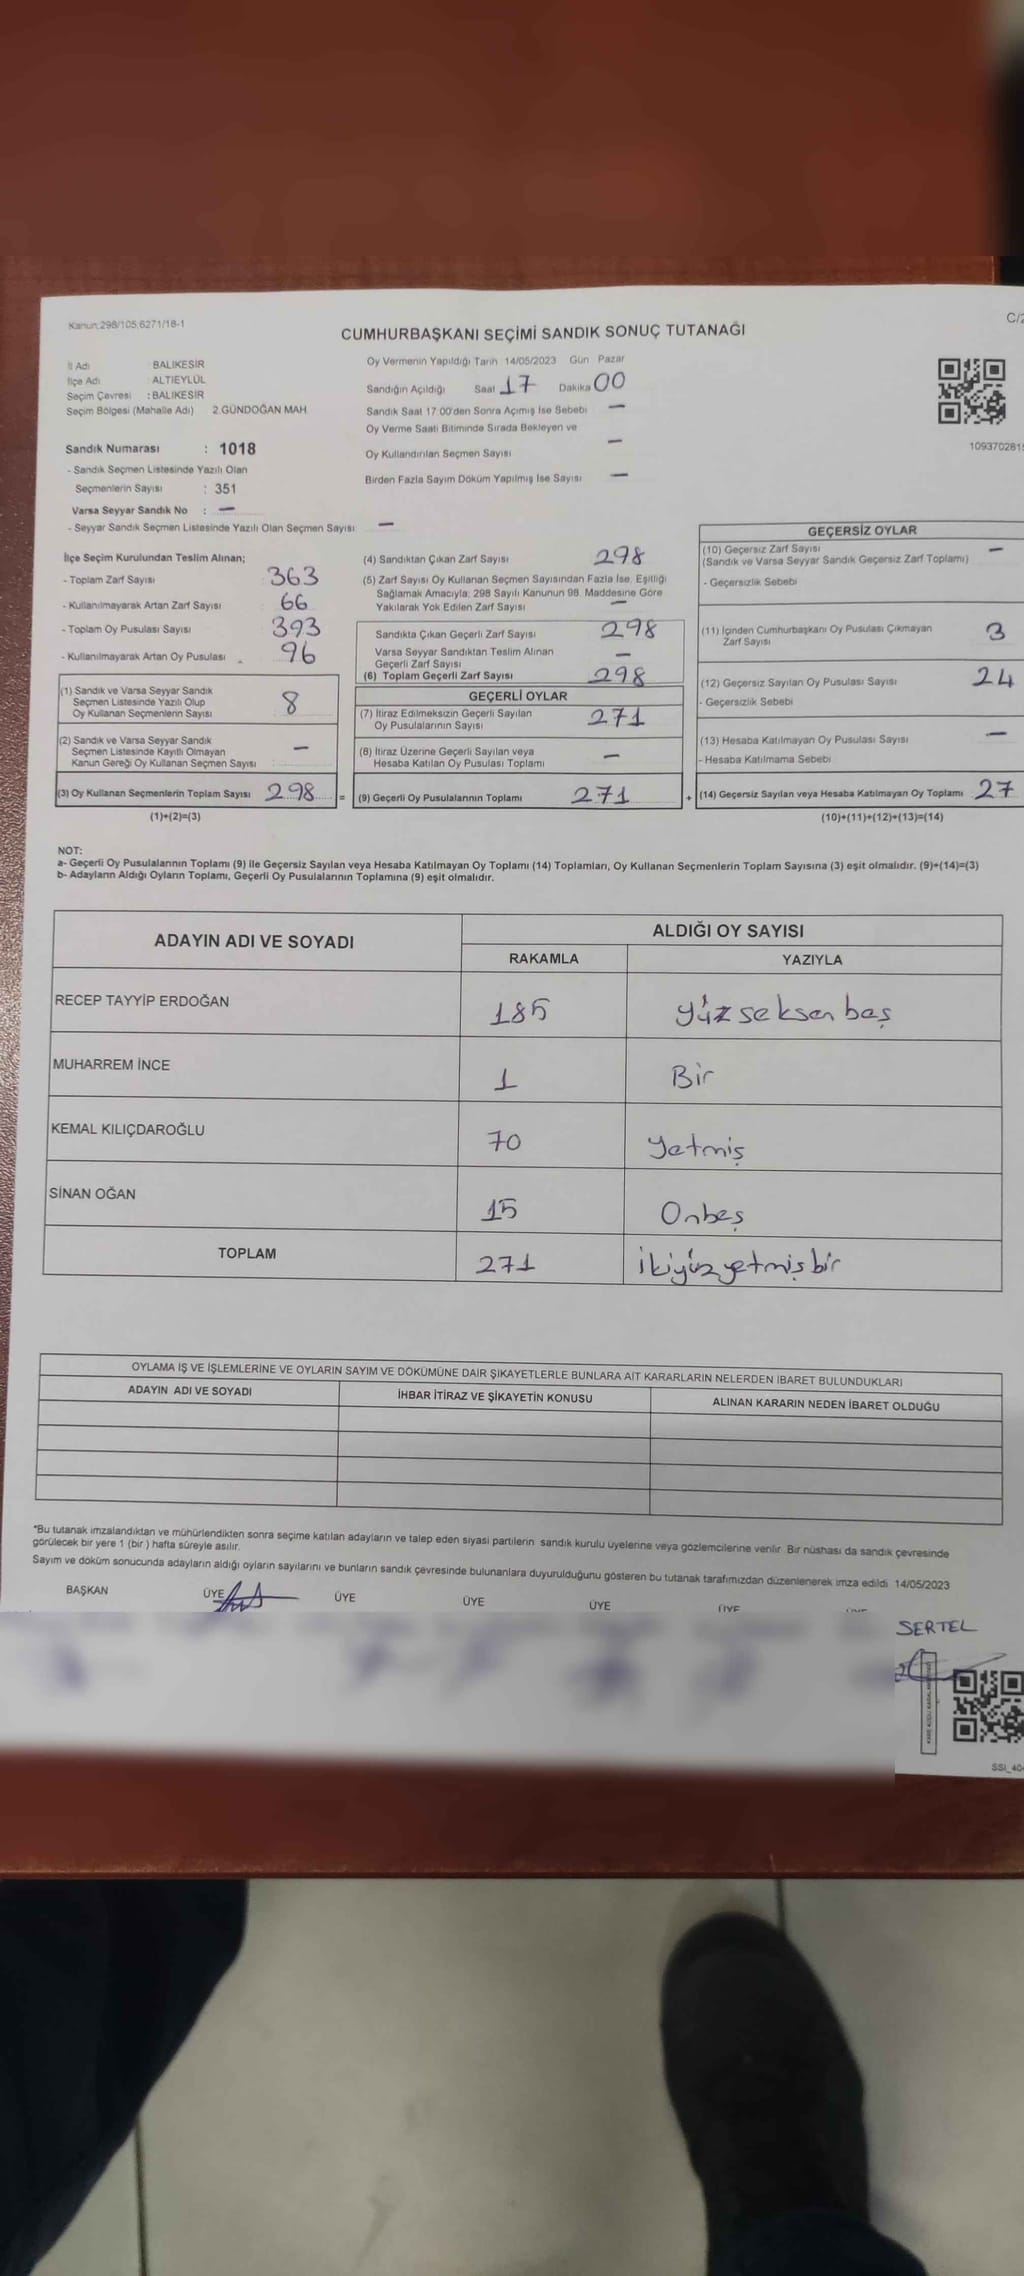 Kanun:298/105,6271/18-1
C/2
CUMHURBAŞKANI SEÇİMİ SANDIK SONUÇ TUTANAĞI
İl Adı : BALIKESİR
İlçe Adı : ALTIEYLÜL
Seçim Çevresi : BALIKESİR
Seçim Bölgesi (Mahalle Adı) 2.GÜNDOĞAN MAH.
Oy Vermenin Yapıldığı Tarih 14/05/2023 Gün Pazar
Sandığın Açıldığı Saat 17 Dakika 00
Sandık Saat 17.00'den Sonra Açımış İse Sebebi —
Oy Verme Saati Bitiminde Sırada Bekleyen ve
Oy Kullandırılan Seçmen Sayısı —
Birden Fazla Sayım Döküm Yapılmış İse Sayısı —
109370281
Sandık Numarası : 1018
- Sandık Seçmen Listesinde Yazılı Olan
Seçmenlerin Sayısı : 351
Varsa Seyyar Sandık No : —
- Seyyar Sandık Seçmen Listesinde Yazılı Olan Seçmen Sayısı —
İlçe Seçim Kurulundan Teslim Alınan;
- Toplam Zarf Sayısı 363
- Kullanılmayarak Artan Zarf Sayısı 66
- Toplam Oy Pusulası Sayısı 393
- Kullanılmayarak Artan Oy Pusulası 96
(1) Sandık ve Varsa Seyyar Sandık
Seçmen Listesinde Yazılı Olup
Oy Kullanan Seçmenlerin Sayısı 8
(2) Sandık ve Varsa Seyyar Sandık
Seçmen Listesinde Kayıtlı Olmayan
Kanun Gereği Oy Kullanan Seçmen Sayısı —
(3) Oy Kullanan Seçmenlerin Toplam Sayısı 298 =
(1)+(2)=(3)
(4) Sandıktan Çıkan Zarf Sayısı 298
(5) Zarf Sayısı Oy Kullanan Seçmen Sayısından Fazla İse, Eşitliği
Sağlamak Amacıyla; 298 Sayılı Kanunun 98. Maddesine Göre
Yakılarak Yok Edilen Zarf Sayısı —
Sandıkta Çıkan Geçerli Zarf Sayısı 298
Varsa Seyyar Sandıktan Teslim Alınan
Geçerli Zarf Sayısı —
(6) Toplam Geçerli Zarf Sayısı 298
GEÇERLİ OYLAR
(7) İtiraz Edilmeksizin Geçerli Sayılan
Oy Pusulalarının Sayısı 271
(8) İtiraz Üzerine Geçerli Sayılan veya
Hesaba Katılan Oy Pusulası Toplamı —
(9) Geçerli Oy Pusulalarının Toplamı 271 +
GEÇERSİZ OYLAR
(10) Geçersiz Zarf Sayısı —
(Sandık ve Varsa Seyyar Sandık Geçersiz Zarf Toplamı)
- Geçersizlik Sebebi
(11) İçinden Cumhurbaşkanı Oy Pusulası Çıkmayan
Zarf Sayısı 3
(12) Geçersiz Sayılan Oy Pusulası Sayısı 24
- Geçersizlik Sebebi
(13) Hesaba Katılmayan Oy Pusulası Sayısı —
- Hesaba Katılmama Sebebi
(14) Geçersiz Sayılan veya Hesaba Katılmayan Oy Toplamı 27
(10)+(11)+(12)+(13)=(14)
NOT:
a- Geçerli Oy Pusulalarının Toplamı (9) ile Geçersiz Sayılan veya Hesaba Katılmayan Oy Toplamı (14) Toplamları, Oy Kullanan Seçmenlerin Toplam Sayısına (3) eşit olmalıdır. (9)+(14)=(3)
b- Adayların Aldığı Oyların Toplamı, Geçerli Oy Pusulalarının Toplamına (9) eşit olmalıdır.
ADAYIN ADI VE SOYADI
ALDIĞI OY SAYISI
RAKAMLA YAZIYLA
RECEP TAYYİP ERDOĞAN 185 Yüzseksenbeş
MUHARREM İNCE 1 Bir
KEMAL KILIÇDAROĞLU 70 Yetmiş
SİNAN OĞAN 15 Onbeş
TOPLAM 271 İkiyüzyetmişbir
OYLAMA İŞ VE İŞLEMLERİNE VE OYLARIN SAYIM VE DÖKÜMÜNE DAİR ŞİKAYETLERLE BUNLARA AİT KARARLARIN NELERDEN İBARET BULUNDUKLARI
ADAYIN ADI VE SOYADI İHBAR İTİRAZ VE ŞİKAYETİN KONUSU ALINAN KARARIN NEDEN İBARET OLDUĞU
*Bu tutanak imzalandıktan ve mühürlendikten sonra seçime katılan adayların ve talep eden siyasi partilerin sandık kurulu üyelerine veya gözlemcilerine verilir. Bir nüshası da sandık çevresinde
görülecek bir yere 1 (bir ) hafta süreyle asılır.
Sayım ve döküm sonucunda adayların aldığı oyların sayılarını ve bunların sandık çevresinde bulunanlara duyurulduğunu gösteren bu tutanak tarafımızdan düzenlenerek imza edildi. 14/05/2023
BAŞKAN ÜYE ÜYE ÜYE ÜYE ÜYE
SERTEL